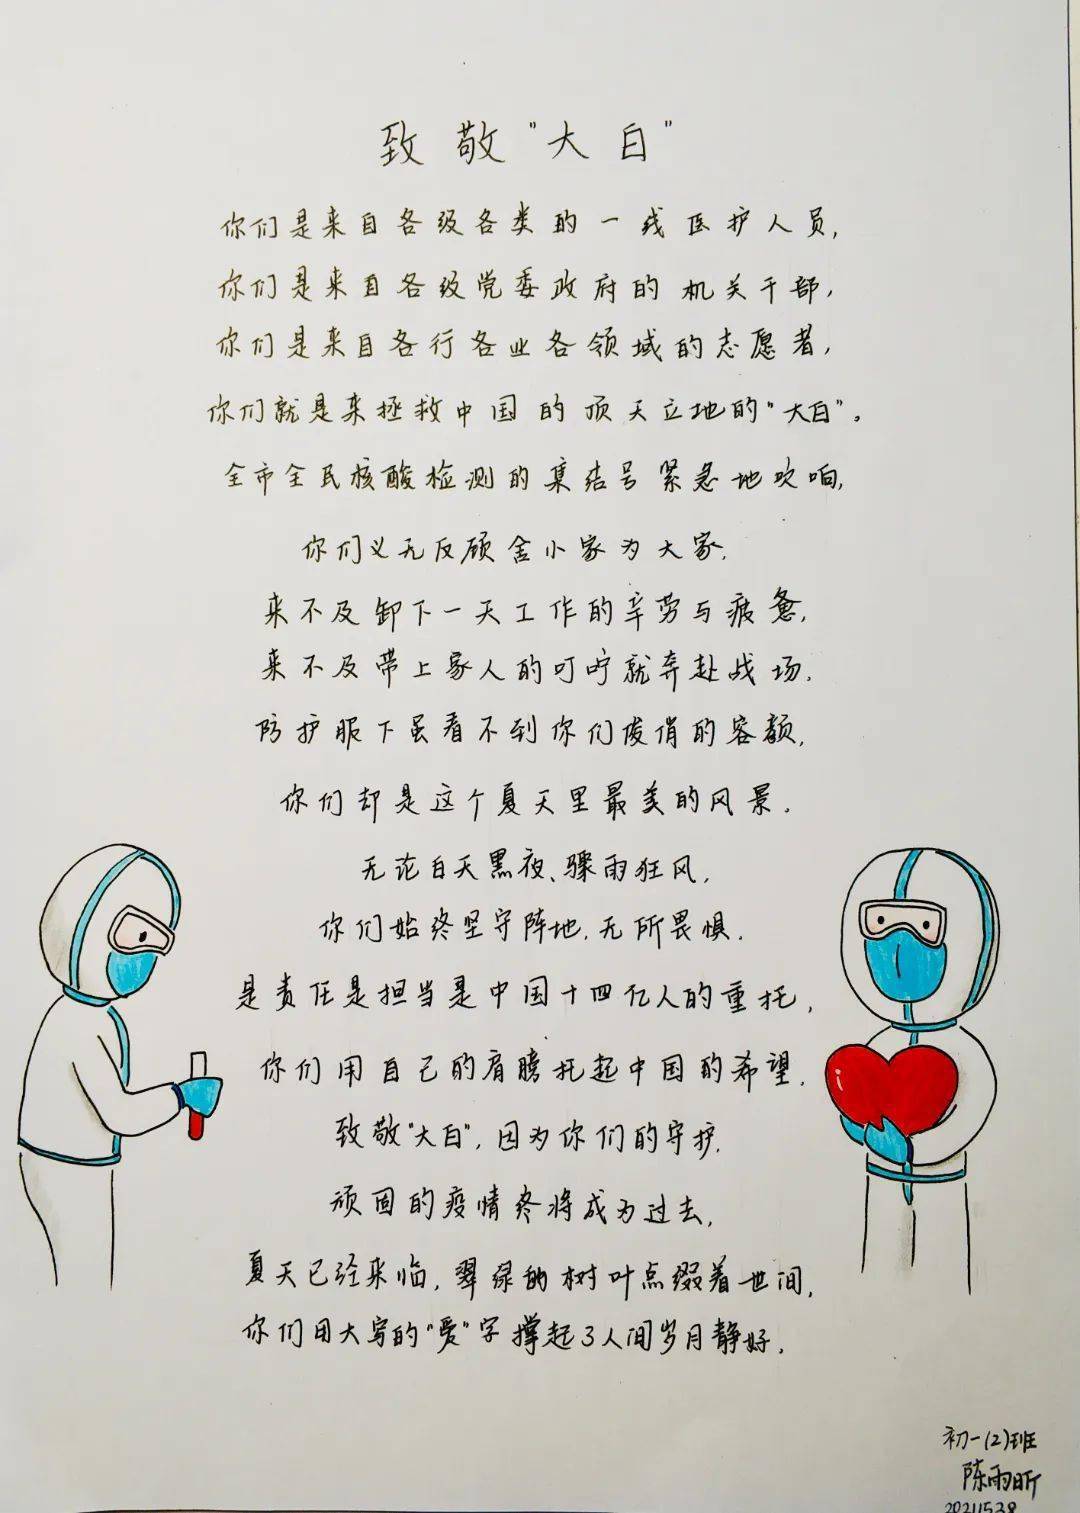 致敬"大白"
你们是来自各级各类的一线医护人员,
你们是来自各级党委政府的机关干部,
你们是来自各行各业各领域的志愿者,
你们就是来拯救中国的顶天立地的"大白"。
全市全民核酸检测的集结号紧急地吹响,
你们义无反顾舍小家为大家.
来不及卸下一天工作的辛劳与疲惫,
来不及带上家人的叮咛就奔赴战场.
防护服下虽看不到你们俊俏的容颜,
你们却是这个夏天里最美的风景.
无论白天黑夜、骤雨狂风,
你们始终坚守阵地.无所畏惧.
是责任是担当是中国十四亿人的重托,
你们用自己的肩膀托起中国的希望.
致敬"大白",因为你们的守护.
顽固的疫情终将成为过去,
夏天已经来临,翠绿的树叶点缀着世间,
你们用大写的"爱"字撑起了人间岁月静好.
初一(2)班
陈雨昕